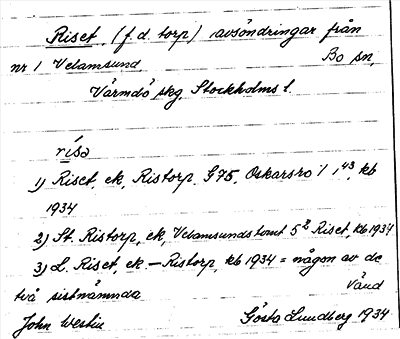 Riset, (f.d. torp) avsöndringar från
nr 1 Velamsund, Bo sn,
Värmdö skg. Stockholms l.
rísa
1) Riset, ek, Ristorp, G75, Oskarsro 1 1,43, kb
1934
2) St. Ristorp, ek, Velamsunds tomt 5² Riset, kb 1934
3) L. Riset, ek – Ristorp, kb 1934 = någon av de
två sistnämnda Vänd
John Westin Gösta Lundberg 1934